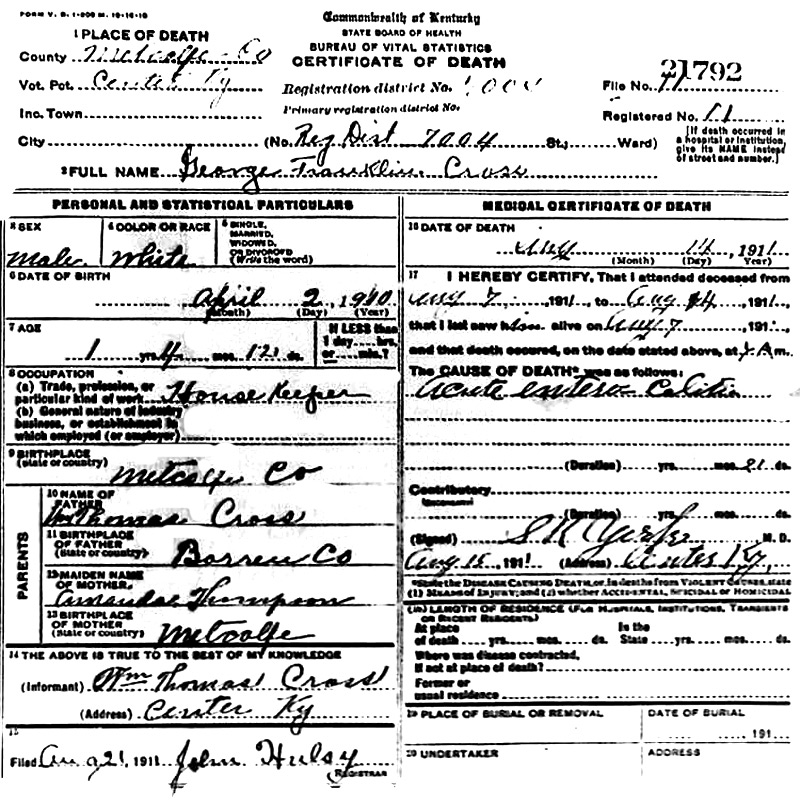 FORM V. S. 1-
Commonwealth of Kentucky
STATE BOARD OF HEALTH
BUREAU OF VITAL STATISTICS
CERTIFICATE OF DEATH
1 PLACE OF DEATH
County Metcalfe Co
Vot. Pct. Center Ky
Inc. Town
City (No. Reg Dist 7004 St.; Ward)
Registration district No.
Primary registration district No.
21792
File No.
Registered No. 11
[If death occurred in a hospital or institution, give its NAME instead of street and number.]
2 FULL NAME George Franklin Cross
PERSONAL AND STATISTICAL PARTICULARS
3 SEX
male
4 COLOR OR RACE
white
5 SINGLE, MARRIED, WIDOWED, OR DIVORCED
(Write the word)
6 DATE OF BIRTH
April 2, 1910
(Month) (Day) (Year)
7 AGE
1 yrs. 4 mos. 12 ds.
If LESS than
1 day, hrs.
or min.?
8 OCCUPATION
(a) Trade, profession, or
particular kind of work House Keeper
(b) General nature of industry
business, or establishment in
which employed (or employer)
9 BIRTHPLACE
(State or country)
Metcalfe Co
PARENTS
10 NAME OF FATHER
Wm Thomas Cross
11 BIRTHPLACE OF FATHER
(State or country)
Barren Co
12 MAIDEN NAME OF MOTHER
Thompson
13 BIRTHPLACE OF MOTHER
(State or country)
Metcalfe
14 THE ABOVE IS TRUE TO THE BEST OF MY KNOWLEDGE
(Informant) Wm Thomas Cross
(Address) Center Ky
15
Filed Aug 21, 1911 John
REGISTRAR
MEDICAL CERTIFICATE OF DEATH
16 DATE OF DEATH
Aug 14, 1911
(Month) (Day) (Year)
17 I HEREBY CERTIFY, That I attended deceased from
Aug 7, 1911, to Aug 14, 1911,
that I last saw him alive on Aug 7, 191
and that death occurred, on the date stated above, at m.
The CAUSE OF DEATH* was as follows:
Acute entero Colitis
(Duration) yrs. mos. 21 ds.
Contributory
(Duration) yrs. mos. ds.
(Signed) M. D.
Aug 15, 1911 (Address) Center Ky.
*State the DISEASE CAUSING DEATH, or, in deaths from VIOLENT CAUSES, state
(1) MEANS OF INJURY; and (2) whether ACCIDENTAL, SUICIDAL or HOMICIDAL
LENGTH OF RESIDENCE (FOR HOSPITALS, INSTITUTIONS, TRANSIENTS
OR RECENT RESIDENTS)
At place In the
of death yrs. mos. ds. State yrs. mos. ds.
Where was disease contracted,
if not at place of death?
Former or
usual residence
19 PLACE OF BURIAL OR REMOVAL
DATE OF BURIAL
191
20 UNDERTAKER
ADDRESS